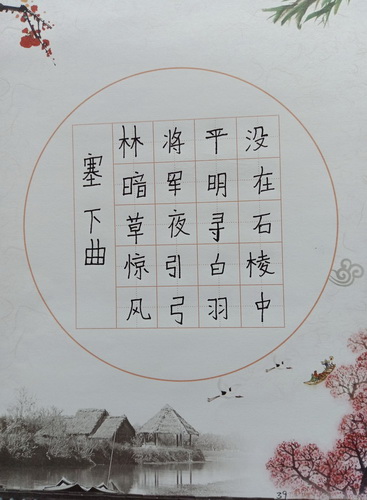 塞下曲
林暗草惊风
将军夜引弓
平明寻白羽
没在石棱中
39